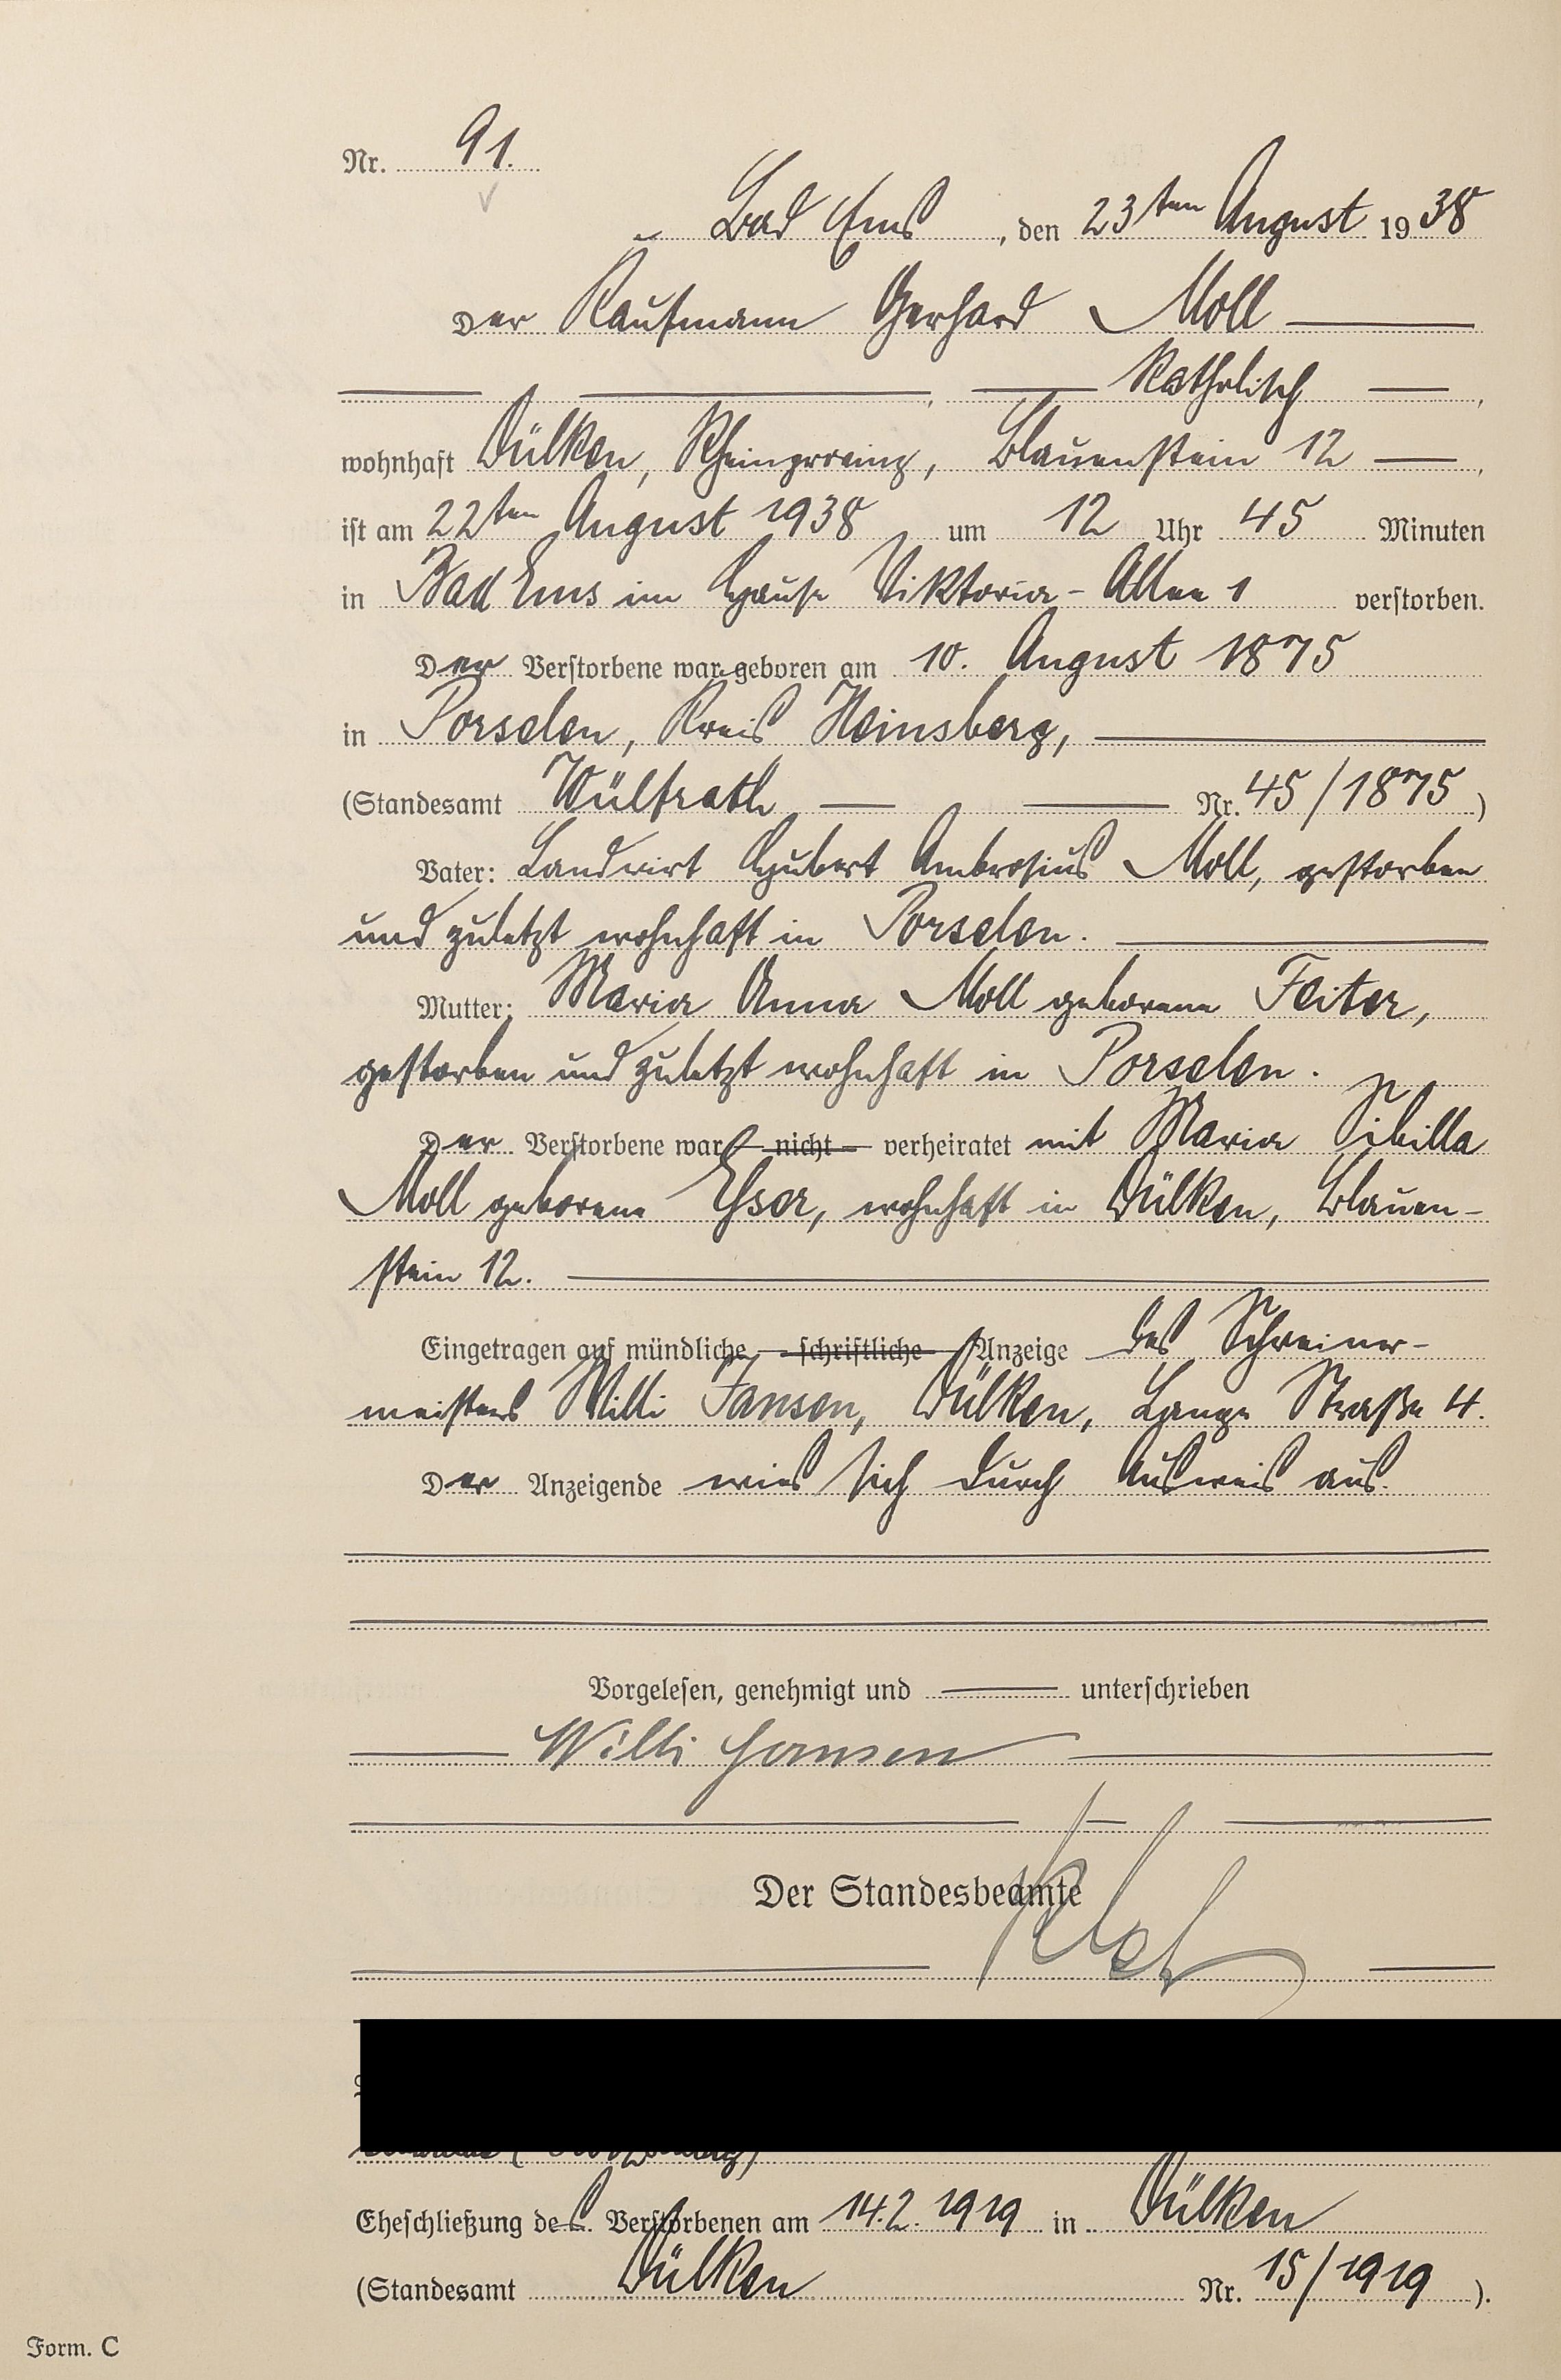 Nr. 91.
Bad Ems, den 23ten August 1938
Der Kaufmann Gerhard Moll
katholisch,
wohnhaft Dülken, Rheinprovinz, Blauenstein 12,
ist am 22ten August 1938 um 12 Uhr 45 Minuten
in Bad Ems im Hause Viktoria-Allee 1 verstorben.
Der Verstorbene war geboren am 10. August 1875
in Porselen, Kreis Heinsberg,
(Standesamt Wülfrath Nr. 45/1875)
Vater: Landwirt Hubert Ambrosius Moll, gestorben
und zuletzt wohnhaft in Porselen.
Mutter: Maria Anna Moll geborene Feiter,
gestorben und zuletzt wohnhaft in Porselen.
Der Verstorbene war nicht verheiratet mit Maria Sibilla
Moll geborene Esser, wohnhaft in Dülken, Blauen-
stein 12.
Eingetragen auf mündliche schriftliche Anzeige des Schreiner-
meisters Willi Jansen, Dülken, Lange Straße 4.
Der Anzeigende wies sich durch Ausweis aus.
Vorgelesen, genehmigt und unterschrieben
Willi Jansen
Der Standesbeamte
Eheschließung des Verstorbenen am 14.2.1919 in Dülken
(Standesamt Dülken Nr. 15/1919).
Form. C